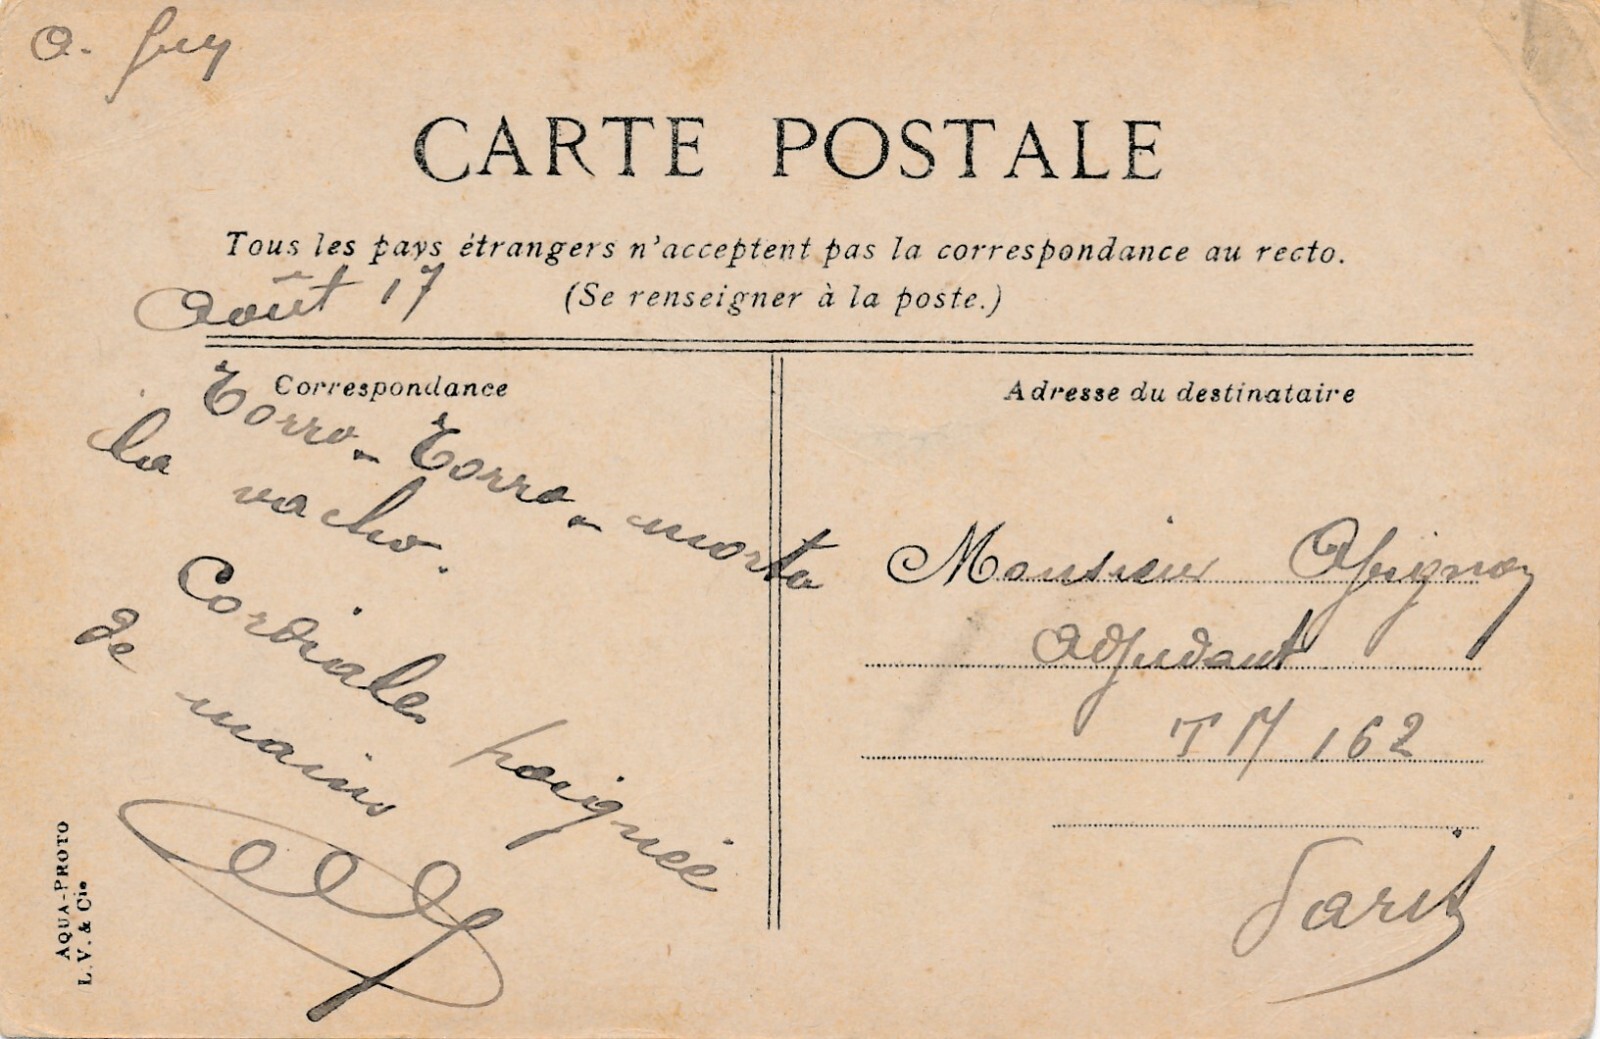 A. Guy
CARTE POSTALE
Tous les pays étrangers n'acceptent pas la correspondance au recto.
(Se renseigner à la poste.)
Août 17
Correspondance
Torro - Torro - morta
la vacho.
Cordiales poignée
de mains
Adresse du destinataire
Monsieur
Adjudant
TM 162
Paris
AQUA-PHOTO
L. V. & Cie